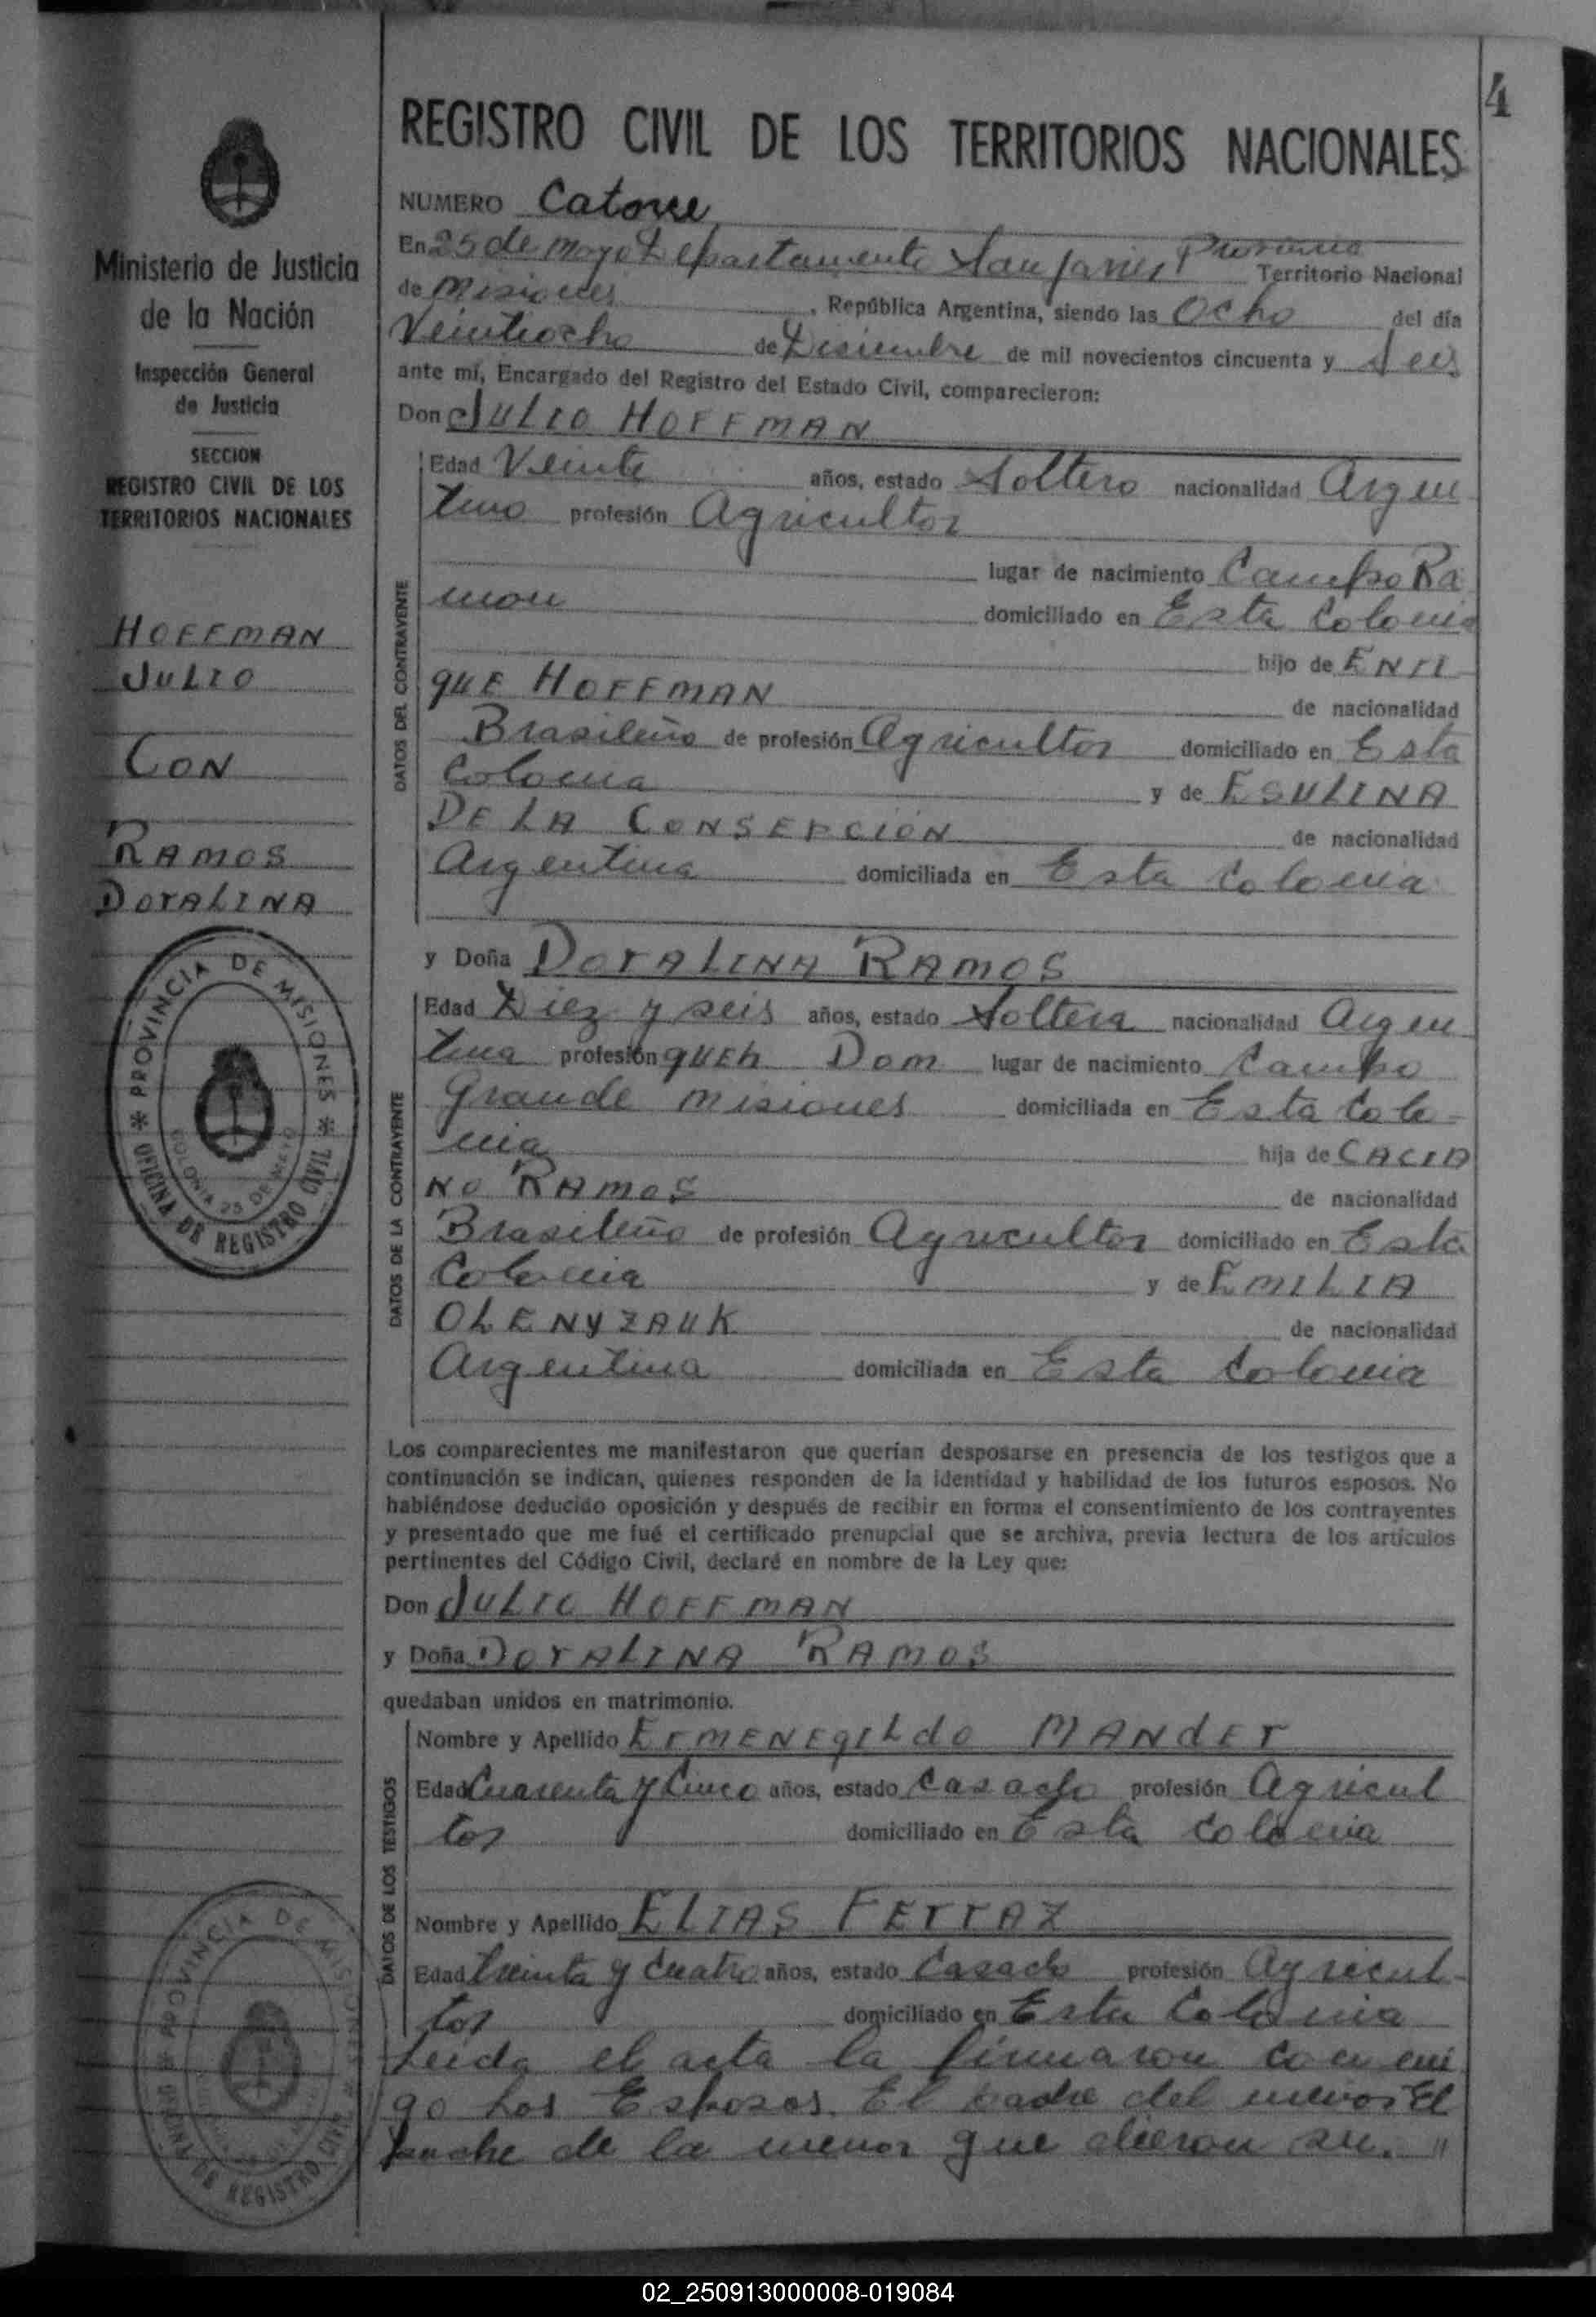 4
REGISTRO CIVIL DE LOS TERRITORIOS NACIONALES
Ministerio de Justicia
de la Nación
Inspección General
de Justicia
SECCION
REGISTRO CIVIL DE LOS
TERRITORIOS NACIONALES
HOFFMAN
JULIO
CON
RAMOS
DORALINA
PROVINCIA DE MISIONES
OFICINA DE REGISTRO CIVIL
COLONIA 25 DE MAYO
NUMERO Catorce
En 25 de Mayo Departamento San Javier Provincia Territorio Nacional
de Misiones, República Argentina, siendo las Ocho del día
Veintiocho de Disiembre de mil novecientos cincuenta y Seis
ante mí, Encargado del Registro del Estado Civil, comparecieron:
Don JULIO HOFFMAN
DATOS DEL CONTRAYENTE
Edad Veinte años, estado Soltero nacionalidad Argen
tino profesión Agricultor
lugar de nacimiento Campo Ra
mon domiciliado en Esta Colonia
hijo de ENRI
QUE HOFFMAN de nacionalidad
Brasileño de profesión Agricultor domiciliado en Esta
Colonia y de ESULINA
DE LA CONSEPCION de nacionalidad
Argentina domiciliada en Esta Colonia
y Doña DORALINA RAMOS
DATOS DE LA CONTRAYENTE
Edad Diez y seis años, estado Soltera nacionalidad Argen
tina profesión QUEH DOM lugar de nacimiento Campo
Grande Misiones domiciliada en Esta Colo-
nia hija de CACIA
NO RAMOS de nacionalidad
Brasileño de profesión Agricultor domiciliado en Esta
Colonia y de EMILIA
OLENYZAUK de nacionalidad
Argentina domiciliada en Esta Colonia
Los comparecientes me manifestaron que querían desposarse en presencia de los testigos que a
continuación se indican, quienes responden de la identidad y habilidad de los futuros esposos. No
habiéndose deducido oposición y después de recibir en forma el consentimiento de los contrayentes
y presentado que me fué el certificado prenupcial que se archiva, previa lectura de los artículos
pertinentes del Código Civil, declaré en nombre de la Ley que:
Don JULIO HOFFMAN
y Doña DORALINA RAMOS
quedaban unidos en matrimonio.
DATOS DE LOS TESTIGOS
Nombre y Apellido ERMENEGILDO MANDER
Edad Cuarenta y Cinco años, estado Casado profesión Agricul
tor domiciliado en Esta Colonia
Nombre y Apellido ELIAS FERRAZ
Edad Treinta y Cuatro años, estado Casado profesión Agricul-
tor domiciliado en Esta Colonia
Leida el acta la firmaron conmi
go Los Esposos. El padre del menor El
padre de la menor que dieron su. "
PROVINCIA DE MISIONES
OFICINA DE REGISTRO CIVIL
02_250913000008-019084